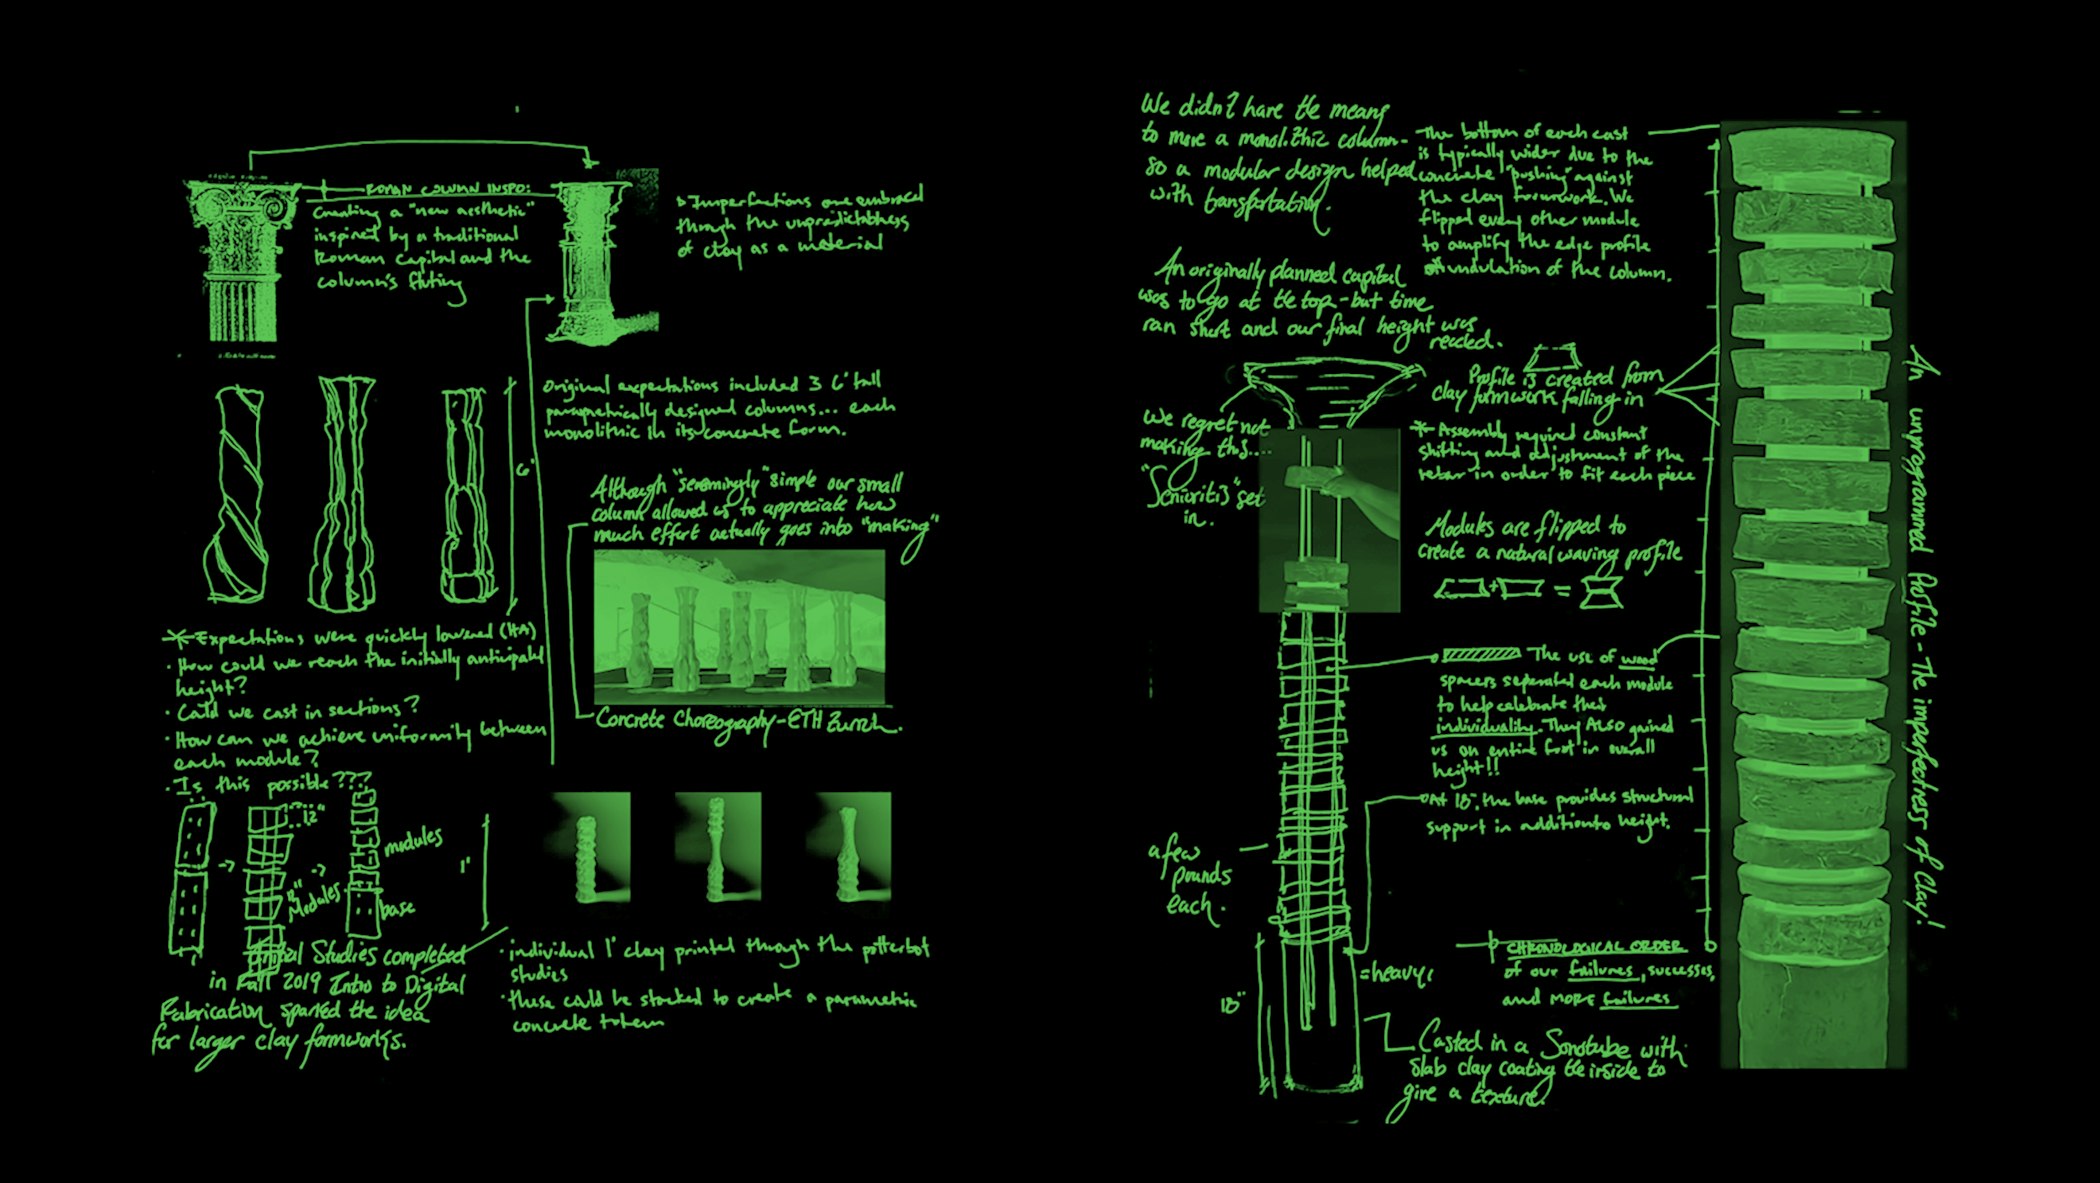 ROMAN COLUMN INSPO:
Creating a "new aesthetic"
inspired by a traditional
Roman Capital and the
column's fluting
Imperfections are embraced
through the unpredictableness
of clay as a material
Original expectations included 3 6' tall
parametrically designed columns... each
monolithic in its concrete form.
6'
Although "seemingly" simple our small
column allowed us to appreciate how
much effort actually goes into "making"
Concrete Choreography - ETH Zurich.
Expectations were quickly lowered (HA)
· How could we reach the initially anticipated
height?
· Could we cast in sections?
· How can we achieve uniformity between
each module?
· Is this possible???
12"
2" Modules
modules
base
1'
Initial Studies completed
in Fall 2019 Intro to Digital
Fabrication sparked the idea
for larger clay formworks.
· individual 1' clay printed through the potterbot
studies
· these could be stacked to create a parametric
concrete totem
We didn't have the means
to move a monolithic column-
so a modular design helped
with transportation.
An originally planned capital
was to go at the top - but time
ran short and our final height was
reached.
We regret not
making this....
"Senioritis" set
in.
a few
pounds
each.
18"
= heavy!
The bottom of each cast
is typically wider due to the
concrete "pushing" against
the clay formwork. We
flipped every other module
to amplify the edge profile
undulation of the column.
Profile is created from
clay formwork falling in
* Assembly required constant
shifting and adjustment of the
rebar in order to fit each piece
Modules are flipped to
create a natural waving profile
+ =
The use of wood
spacers separated each module
to help celebrate their
individuality. They ALSO gained
us an entire foot in overall
height!!
At 18", the base provides structural
support in addition to height.
CHRONOLOGICAL ORDER
of our failures, successes,
and MORE failures
Casted in a Sonotube with
slab clay coating the inside to
give a texture.
An unprogrammed Profile - The imperfectness of Clay!